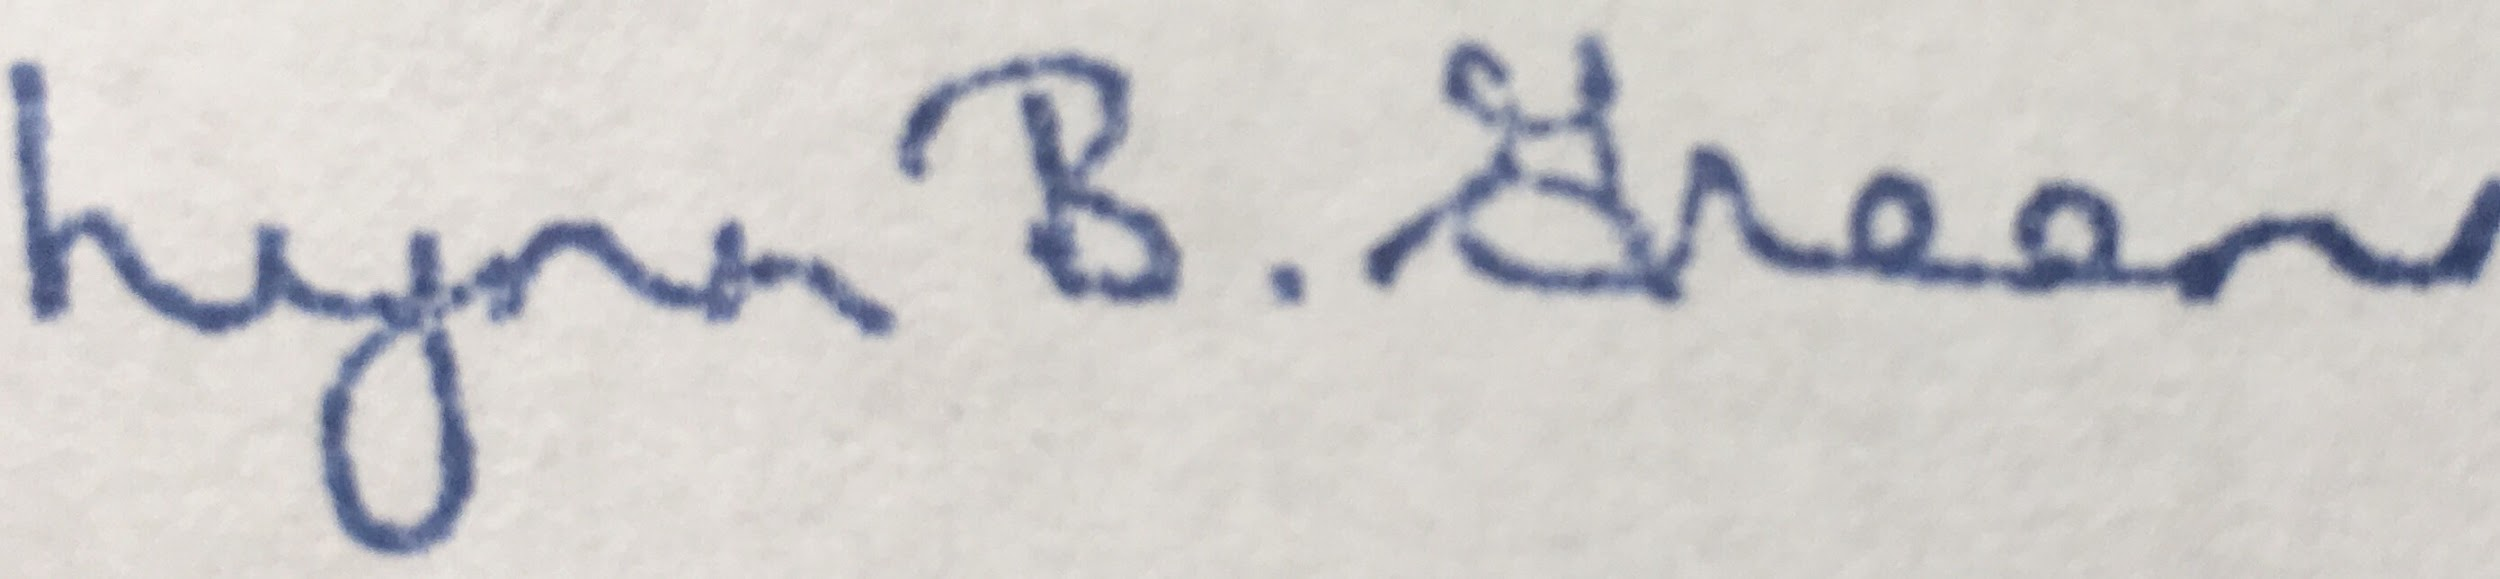 Lynn B. Green